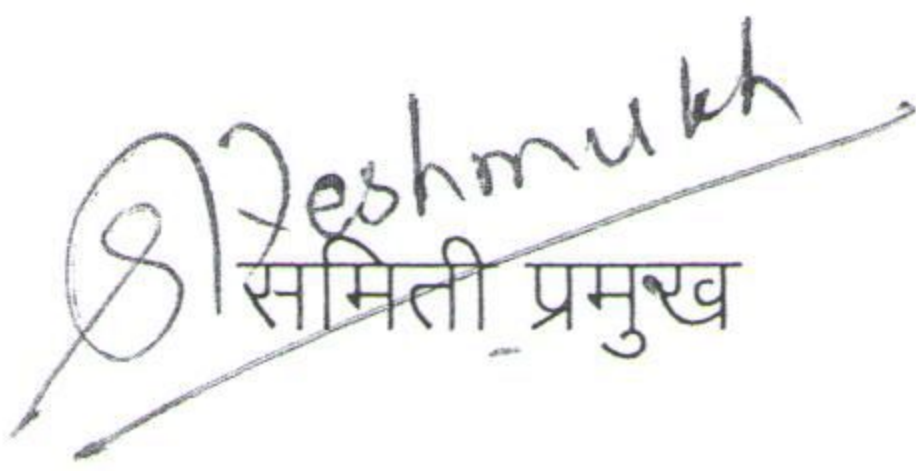 SDeshmukh
समिती प्रमुख